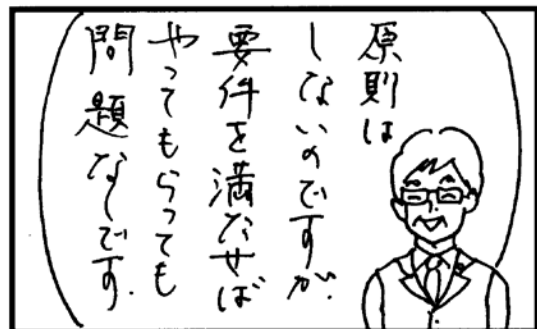 原則は
しないのですが、
要件を満たせば
やってもらっても
問題なしです.